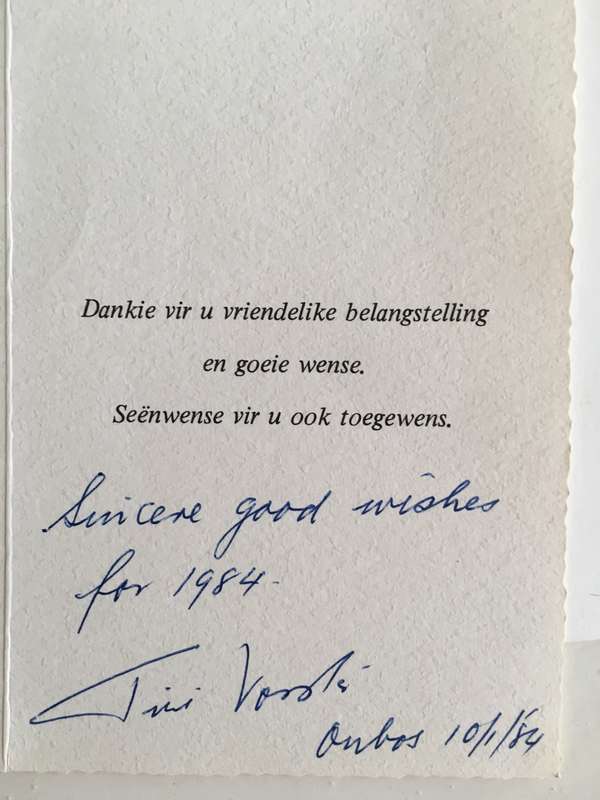 Dankie vir u vriendelike belangstelling
en goeie wense.
Seënwense vir u ook toegewens.
Sincere good wishes
for 1984.
Tini Vorster
Oubos 10/1/84